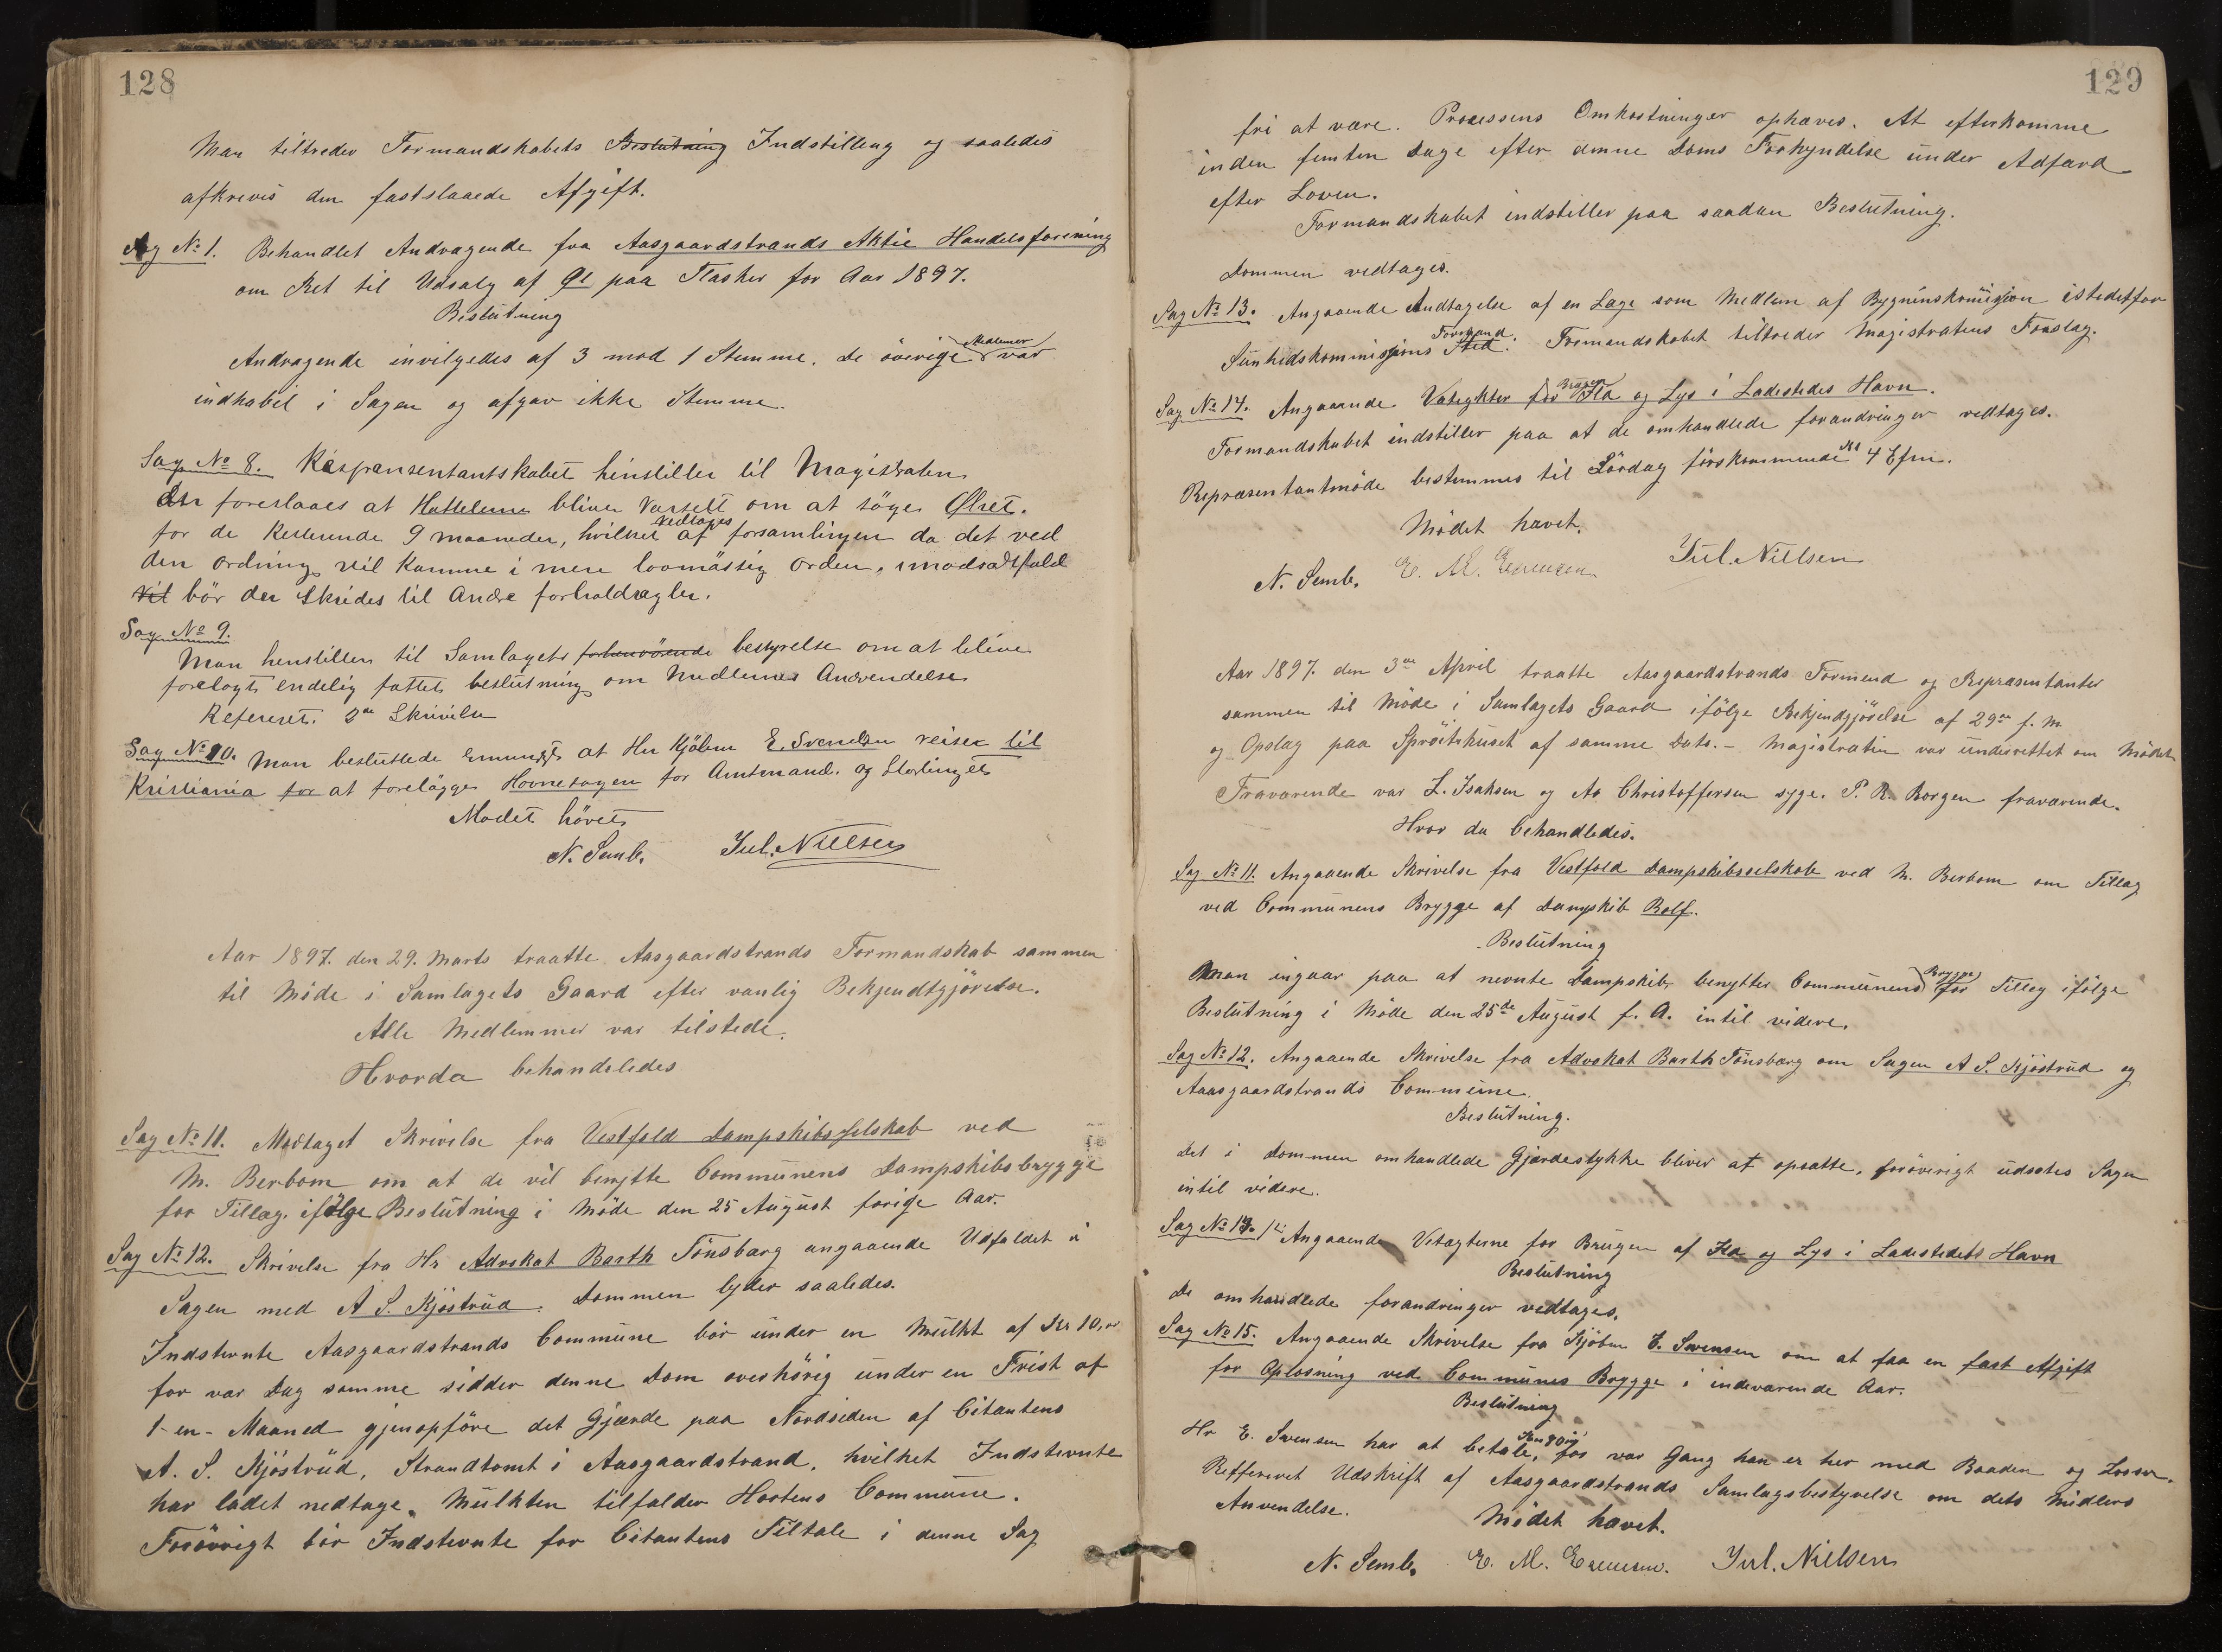 128
Man tiltreder Formandskabets Beslutning Indstilling og saaledes
afkreves den fastslaaede Afgift.
Sag No 1. Behandlet Andragende fra Aasgaardstrands Aktie Handelsforening
om Ret til Udsalg af Øl paa Flasker for Aar 1897.
Beslutning
Andragende invilgedes af 3 mod 1 Stemme. De överige Medlemer var
indhabil i Sagen og afgav ikke Stemme.
Sag No 8. Respræsentantskabet hinstiller til Magistraten
Der foreslaaes at Hottelerne bliver Varselt om at söge Ølret.
for de Resterende 9 maaneder, hvilket vedtages af forsamlingen da det ved
den ordning vil komme i mere lovmässig orden, imodsatfald
vil bör der Skrides til Andre forholdsregler.
Sag No 9.
Man henstiller til Samlagets forhenvörende bestyrelse om at blive
forelagt endelig fattet beslutning om Midlernes Anvendelse
Refereret. 2de Skrivelser
Sag No 10. Man besluttede Enstemigt at Her Kjöbm E. Svendsen reiser til
Kristiania for at forelägge Havnesagen for Amtmand. og Stortinget
Mödet hövet
N. Semb. Jul. Nielsen
Aar 1897. den 29. Marts traatte Aasgaardstrands Formandskab sammen
til Möde i Samlagets Gaard efter vanlig Bekjendtgjörelse.
Alle Medlemmer var tilstede.
Hvorda behandeledes
Sag No 11. Modtaget Skrivelse fra Vestfold Dampskibsselskab ved
M. Berbom om at de vil benytte Communens Dampskibsbrygge
for Tillæg. ifölge Beslutning i Möde den 25 August forige Aar.
Sag No 12. Skrivelse fra Hr Advokat Barth Tönsbærg angaaende Udfaldet i
Sagen med A S. Kjöstrud. Dommen lyder saaledes.
Indstevnte Aasgaardstrands Commune bör under en Mulkt af Kr 10,00
for var Dag somme sidder denne Dom overhörig under en Frist af
1- en - Maaned gjenopföre det Gjærde paa Nordsiden af Citantens
A. S. Kjöstrud, Strandtomt i Aasgaardstrand, hvilket Indstevnte
har ladet nedtage. Mulkten tilfalder Hortens Commune.
Foröverigt bör Indstevnte for Citantens Tiltale i denne Sag
129
fri at være. Processens Omkostninger ophæves. At efterkomme
inden femten Dage efter denne Doms Forkyndelse under Adfærd
efter Loven.
Formandskabet indstiller paa saadan Beslutning.
Dommen vedtages.
Sag No 13. Angaaende Andtagelse af en Læge som Medlem af Bygninskomission istedetfor
Sunhedskommissjons Formand Sted. Formandskabet tiltreder Magistratens Forslag.
Sag No 14. Angaaende Vetegkter for Brugen Ild og Lys i Ladestedes Havn.
Formandskabet indstiller paa at de omhandlede forandringer vedtages.
Repræsentantmöde bestemmes til Lördag förskommende Kl 4 Efm.
Mödet hævet.
N. Semb. E. M. Jul. Nielsen
Aar 1897. den 3de April traatte Aasgaardstrands Formend og Repræsentanter
sammen til Möde i Samlagets Gaard ifölge Bekjendgjörelse af 29de f. M.
og Opslag paa Spröitehuset af samme Dato. - Magistraten var underrettet om Mödet
Fraværende var L. Isaksen og Aa Christoffersen syge. P. R. Borgen fraværende.
Hvor da behandledes.
Sag No 11. Angaaende Skrivelse fra Vestfold Dampskibsselskab ved M. Berbom om Tillæg
ved Communens Brygge af Dampskib Rolf.
Beslutning
Man ingaar paa at nevnte Dampskib benytter Communens Brygge for Tilleg ifölge
Beslutning i Möde den 25de August f. A. intil videre.
Sag No 12. Angaaende Skrivelse fra Advokat Barth Tönsbærg om Sagen A S. Kjöstrud og
Aaasgaardstrands Commune.
Beslutning.
Det i Dommen omhandlede Gjærdestykke bliver at opsatte, foröverigt udsætes Sagen
intil videre.
Sag No 14. Angaaende Vetagterne for Brugen af Ild og Lys i Ladestedets Havn
Beslutning
De omhandlede forandringer vedtages.
Sag No 15. Angaaende Skrivelse fra Kjöbm E. Svensen om at faa en fast Afgift
for Oplosning ved Communes Brygge i indeværende Aar.
Beslutning
Hr E. Svensen har at betale, for var Gang han er her med Baaden og Losser.
Reffereret Udskrift af Aasgaardstrands Samlagsbestyrelse om dets Midlers
Anvendelse.
Mödet hævet.
N. Semb. E. M. Jul. Nielsen